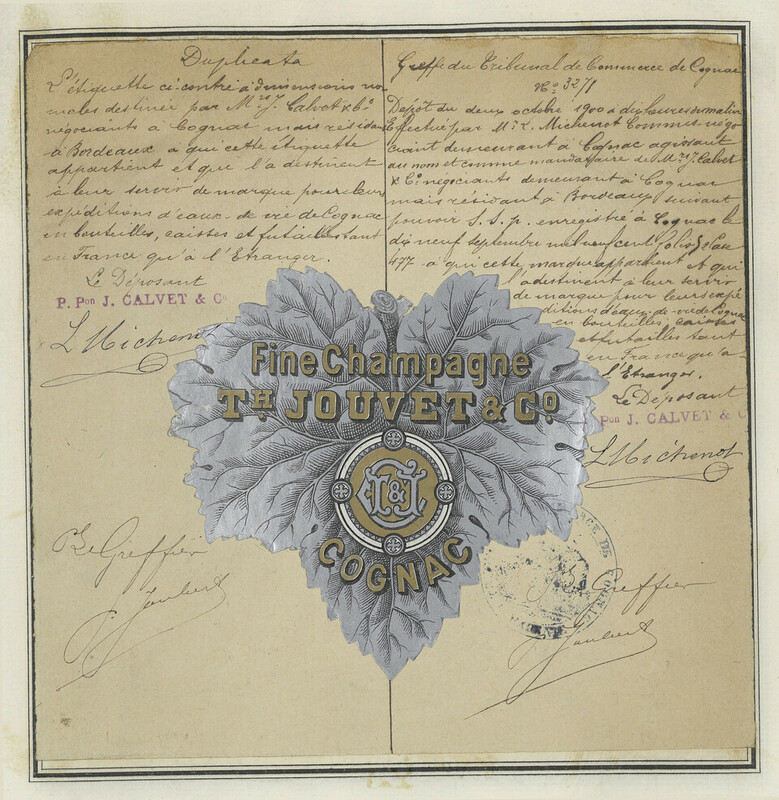 Duplicata
L'étiquette ci-contre à dimensions nor
males destinée par Mrs J. Calvet & Co
négociants à Cognac mais résidant
à Bordeaux a qui cette étiquette
appartient et que l'a destinent
à leur servir de marque pour leurs
expéditions d'eaux-de-vie de Cognac
en bouteilles, caisses et futailles tant
en France qu'à l'Etranger.
Le Déposant
P. Pon J. CALVET & Co
L Michenot
Le Greffier
Joubert
Greffe du Tribunal de Commerce de Cognac
No 3271
Dépôt du deux octobre 1900 à dix heures du matin
Effectué par Mr L. Michenot Commis-négo
ciant demeurant à Cognac agissant
au nom et comme mandataire de Mrs J. Calvet
& Co négociants demeurant à Cognac
mais résidant à Bordeaux suivant
pouvoir S.S.p. enregistré à Cognac le
dix neuf septembre mil neuf cent folio case
477 à qui cette marque appartient et qui
la destinent à leur servir
de marque pour leurs expé
ditions d'eaux-de-vie de Cognac
en bouteilles, caisses
et futailles tant
en France qu'à
l'Etranger.
Le Déposant
Pon J. CALVET & C
L Michenot
Le Greffier
Joubert
Fine Champagne
TH. JOUVET & Co.
COGNAC